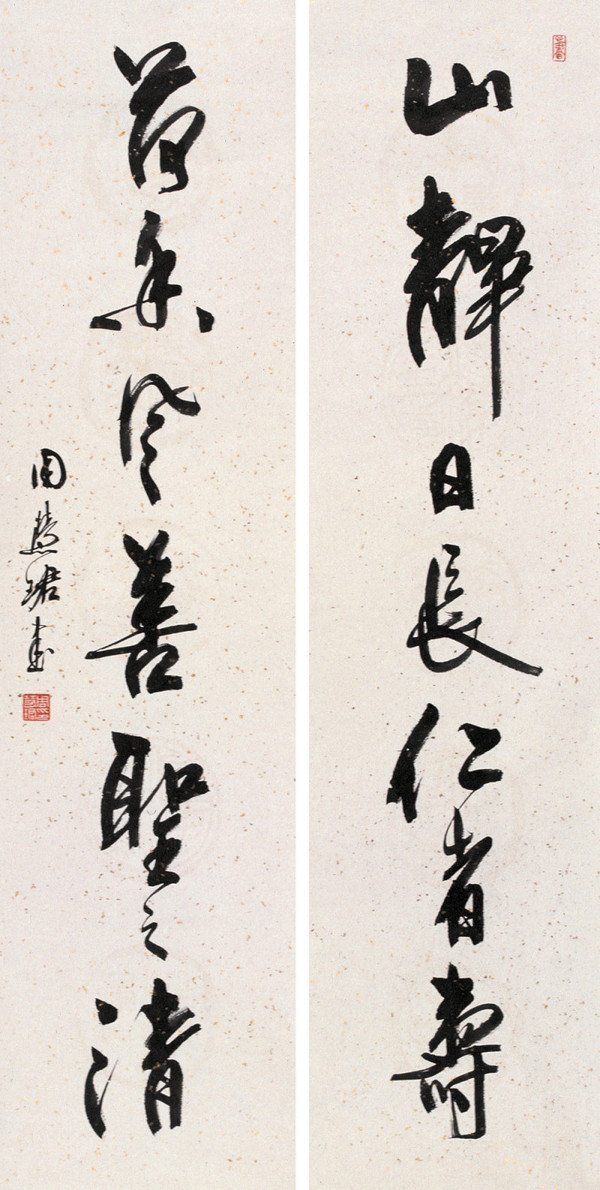 山静日長仁者壽
荷香風善聖之清
周慧珺書